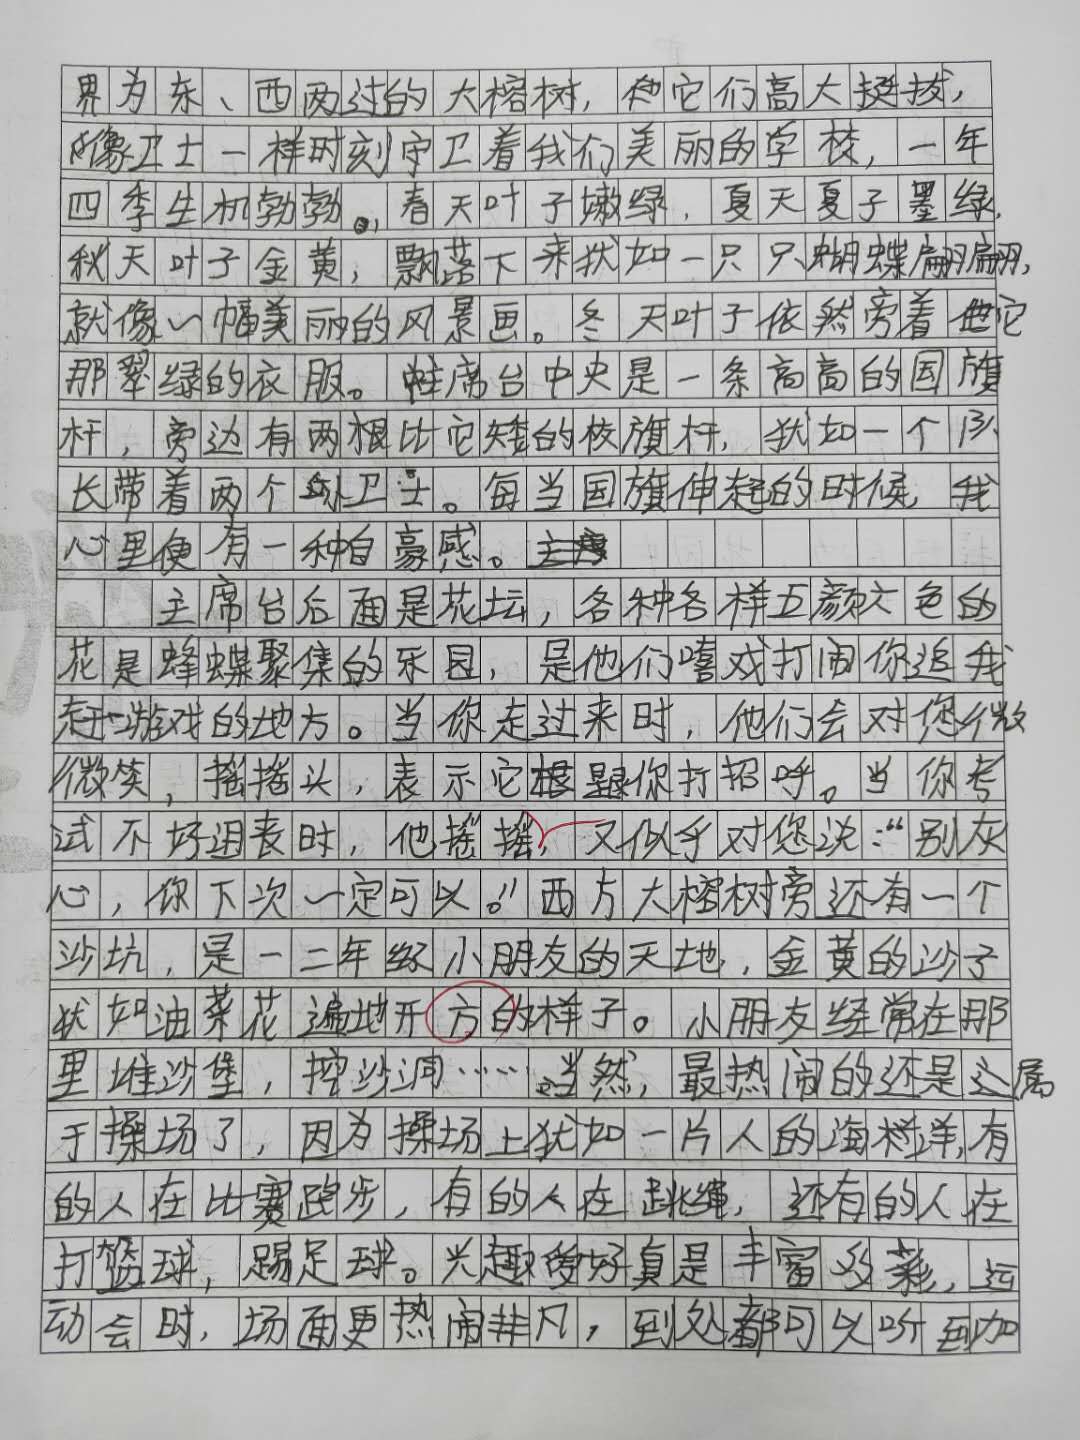 界为东、西两过的大榕树，它们高大挺拔，
像卫士一样时刻守卫着我们美丽的学校，一年
四季生机勃勃。春天叶子嫩绿，夏天夏子墨绿，
秋天叶子金黄，飘落下来犹如一只只蝴蝶扁翩，
就像一幅美丽的风景画。冬天叶子依然旁着它
那翠绿的衣服。主席台中央是一条高高的国旗
杆，旁边有两根比它矮的校旗杆，犹如一个队
长带着两个卫士。每当国旗伸起的时候，我
心里便有一种自豪感。
主席台后面是花坛，各种各样五颜六色的
花是蜂蝶聚集的乐园，是他们嘻戏打闹你追我
赶游戏的地方。当你走过来时，他们会对您微
微笑，摇摇头，表示它跟你打招呼。当你考
试不好迴表时，他摇摇，又似乎对您说：“别灰
心，你下次一定可以。”西方大榕树旁还有一个
沙坑，是一二年级小朋友的天地，金黄的沙子
犹如油菜花遍地开方的样子。小朋友经常在那
里堆沙堡，挖沙洞……当然，最热闹的还是属
于操场了，因为操场上犹如一片人的海洋，有
的人在比赛跑步，有的人在跳绳，还有的人在
打篮球，踢足球。兴趣爱好真是丰富多彩，运
动会时，场面更热闹非凡，到处都可以听到加